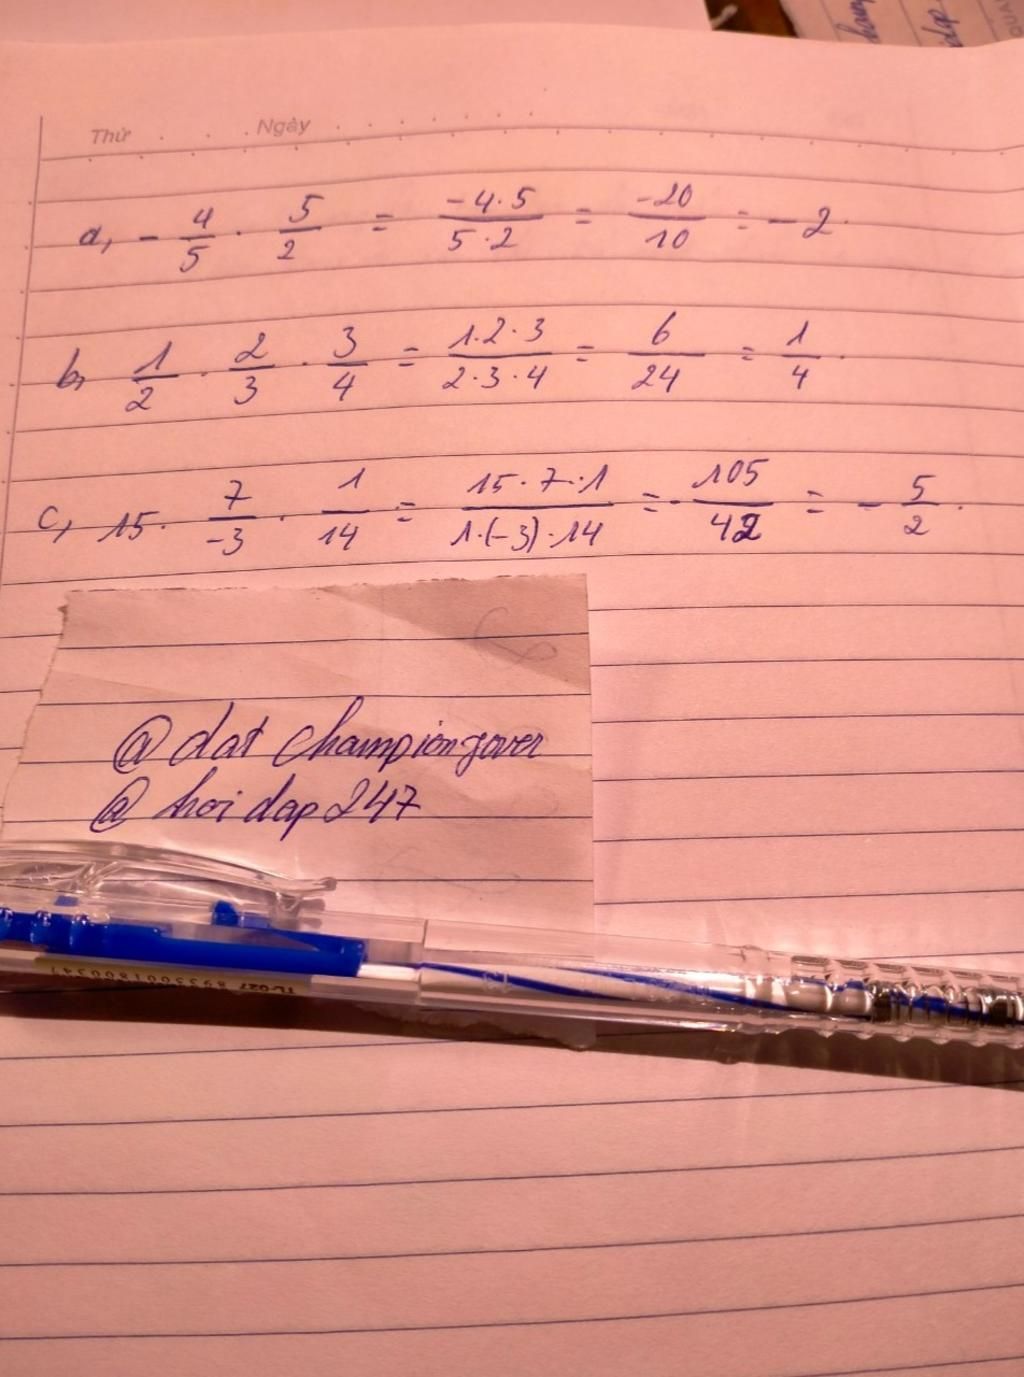 Thứ Ngày
a, - 4/5 · 5/2 = -4·5/5·2 = -20/10 = -2.
b, 1/2 · 2/3 · 3/4 = 1·2·3/2·3·4 = 6/24 = 1/4.
c, 15 · 7/-3 · 1/14 = 15·7·1/1·(-3)·14 = -105/42 = -5/2.
@dat championgover
@hoidap247
TL-027 8935001800347